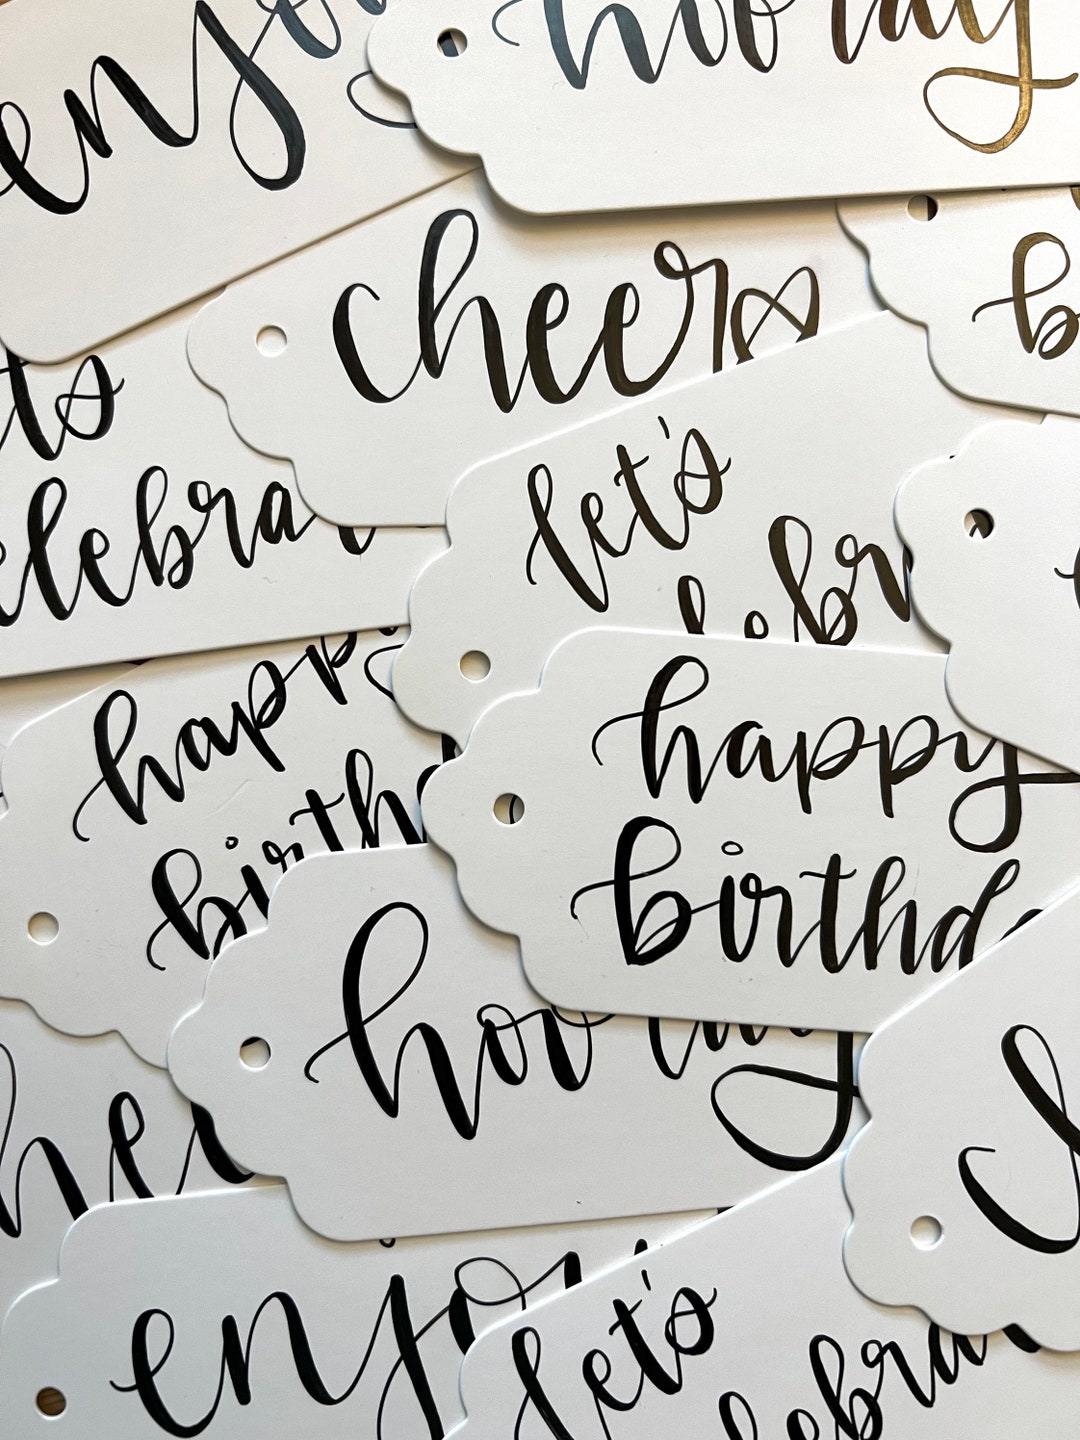 enjoy
hooray
cheers
let's
lebra
let's
lebr
happy
birth
happy
birthda
hooray
hee
enjoy
let's
lebra